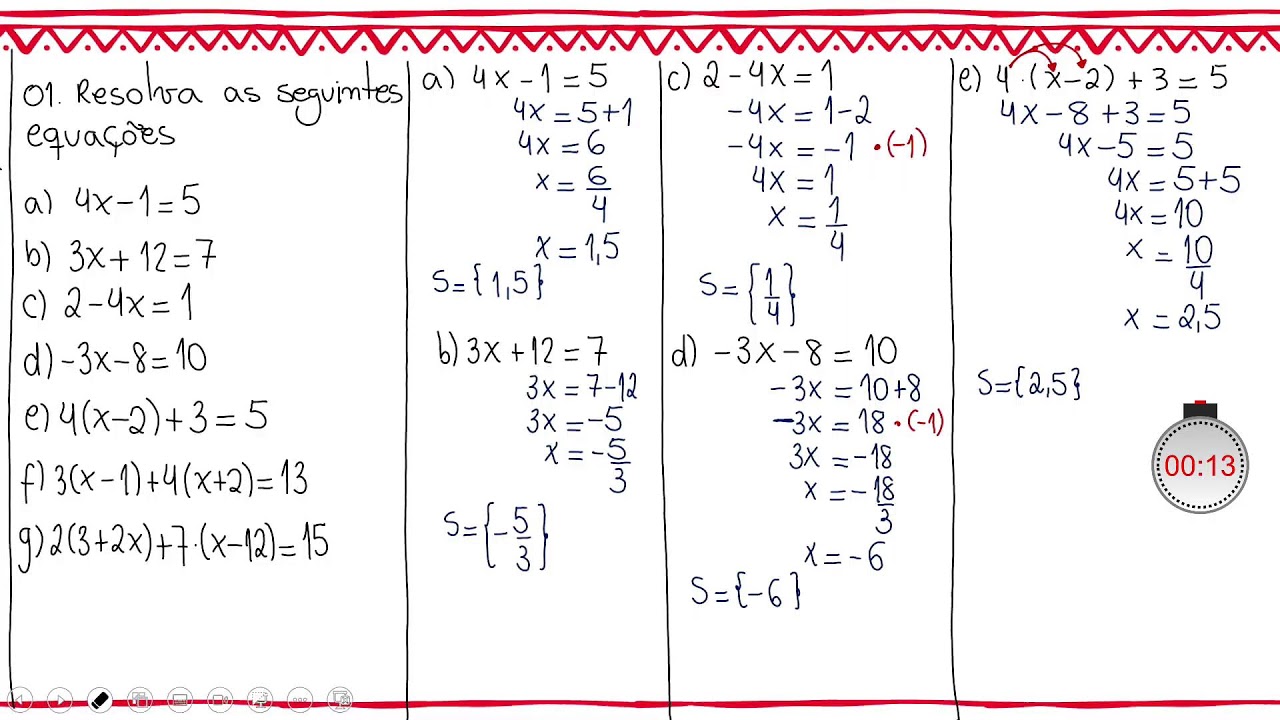 01. Resolva as seguintes
equações
a) 4x-1=5
b) 3x+12=7
c) 2-4x=1
d) -3x-8=10
e) 4(x-2)+3=5
f) 3(x-1)+4(x+2)=13
g) 2(3+2x)+7·(x-12)=15
a) 4x-1=5
4x=5+1
4x=6
x=6/4
x=1,5
S={1,5}
b) 3x+12=7
3x=7-12
3x=-5
x=-5/3
S={-5/3}
c) 2-4x=1
-4x=1-2
-4x=-1 ·(-1)
4x=1
x=1/4
S={1/4}
d) -3x-8=10
-3x=10+8
-3x=18 ·(-1)
3x=-18
x=-18/3
x=-6
S={-6}
e) 4·(x-2)+3=5
4x-8+3=5
4x-5=5
4x=5+5
4x=10
x=10/4
x=2,5
S={2,5}
00:13